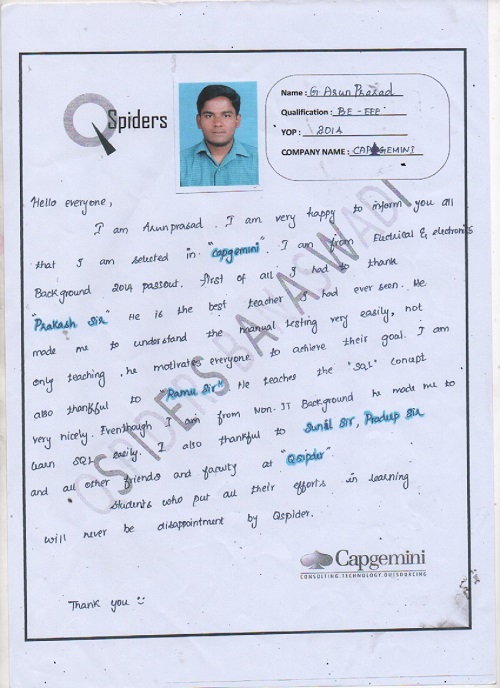 QSpiders
Name : G ArunPrasad
Qualification : BE - EEE
YOP : 2014
COMPANY NAME : CAPGEMINI
Hello everyone,
I am Arunprasad. I am very happy to inform you all
that I am selected in "capgemini". I am from Electrical & electronics
Background 2014 passout. First of all I had to thank
"Prakash Sir" He is the best teacher I had ever seen. He
made me to understand the manual testing very easily, not
only teaching, he motivates everyone to achieve their goal. I am
also thankful to "Ramu Sir" He teaches the "SQL" concept
very nicely. Eventhough I am from Non-IT Background he made me to
learn SQL easily. I also thankful to Sunil Sir, Pradeep Sir
and all other friends and faculty at "Qspider"
Students who put all their efforts in learning
will never be disappointment by Qspider.
Capgemini
CONSULTING.TECHNOLOGY.OUTSOURCING
Thank you
QSPIDERS BANASWADI